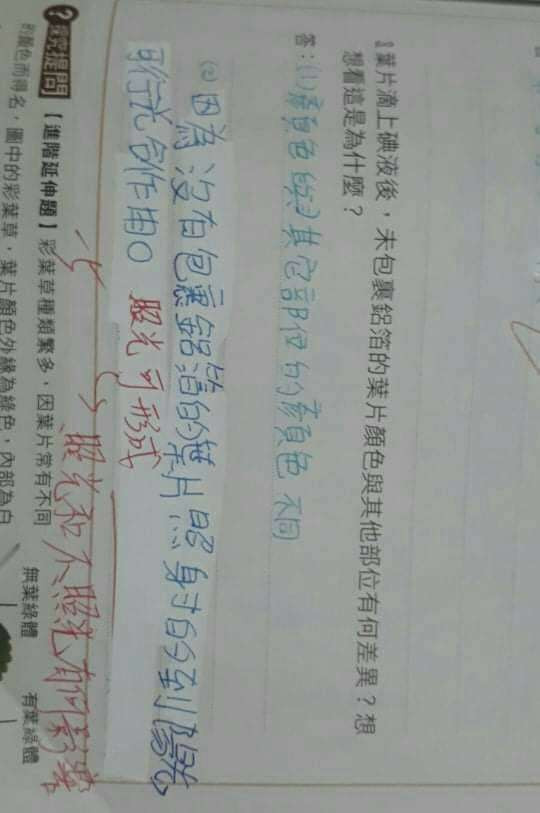 8.葉片滴上碘液後，未包裹鋁箔的葉片顏色與其他部位有何差異？想
想看這是為什麼？
答：(1)顏色與其它部位的顏色不同
(2)因為沒有包裹鋁箔的葉片照射的到陽光
可行光合作用。 照光可形成
照光和不照光有何影響
探究提問【進階延伸題】彩葉草種類繁多，因葉片常有不同
的顏色而得名，圖中的彩葉草，葉片顏色外緣為綠色，內部為白
無葉綠體
有葉綠體